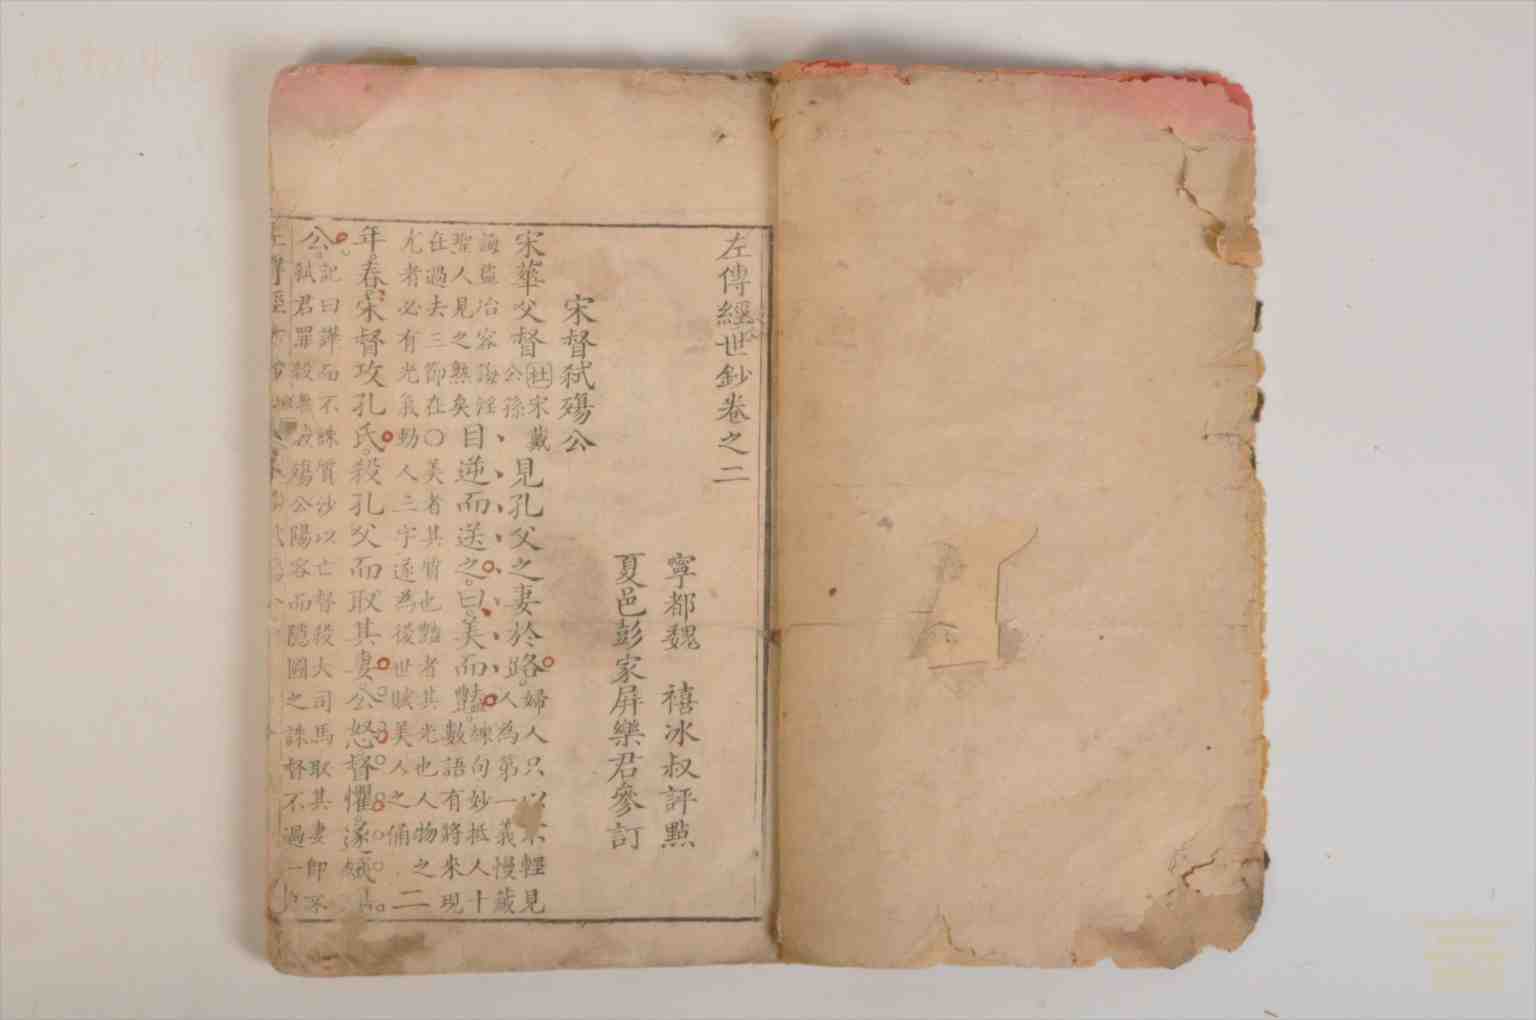 左傳經世鈔卷之二
寧都魏　禧冰叔評點
夏邑彭家屏樂君參訂
宋督弒殤公
宋華父督杜宋戴公孫見孔父之妻於路婦人只以不輕見人為第一義慢藏
誨盜冶容誨淫聖人見之熟矣目逆而送之曰美而豔練句妙抵人十數語有將來現
在過去三節在〇美者其質也豔者其光也人物之尤者必有光氣動人三字遂為後世賦美人之俑二
年春宋督攻孔氏殺孔父而取其妻公怒督懼遂弒
公記曰譁而不誅質沙以亡督殺大司馬取其妻即不弒君罪殺無赦殤公陽容而隱圖之誅督不過一